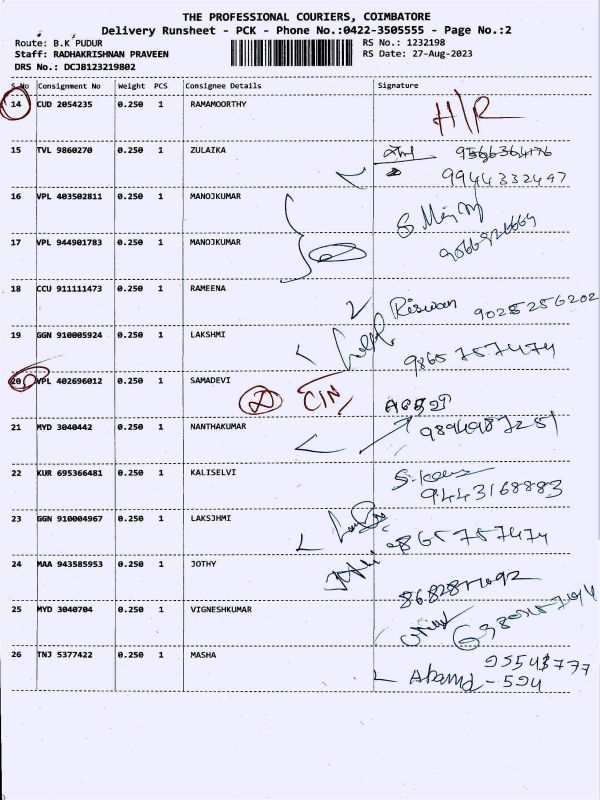 THE PROFESSIONAL COURIERS, COIMBATORE
Delivery Runsheet - PCK - Phone No.:0422-3505555 - Page No.:2
Route: B.K PUDUR RS No.: 1232198
Staff: RADHAKRISHNAN PRAVEEN RS Date: 27-Aug-2023
DRS No.: DCJB123219802
S.No Consignment No Weight PCS Consignee Details Signature
14 CUD 2054235 0.250 1 RAMAMOORTHY H/R
15 TVL 9860270 0.250 1 ZULAIKA
9944332497
16 VPL 403502811 0.250 1 MANOJKUMAR
17 VPL 944901783 0.250 1 MANOJKUMAR
18 CCU 911111473 0.250 1 RAMEENA Riswan 9025256202
19 GGN 910005924 0.250 1 LAKSHMI 9865757474
20 VPL 402696012 0.250 1 SAMADEVI
21 MYD 3040442 0.250 1 NANTHAKUMAR
22 KUR 695366481 0.250 1 KALISELVI
9443168883
23 GGN 910004967 0.250 1 LAKSJHMI 9865757474
24 MAA 943585953 0.250 1 JOTHY
25 MYD 3040704 0.250 1 VIGNESHKUMAR
26 TNJ 5377422 0.250 1 MASHA